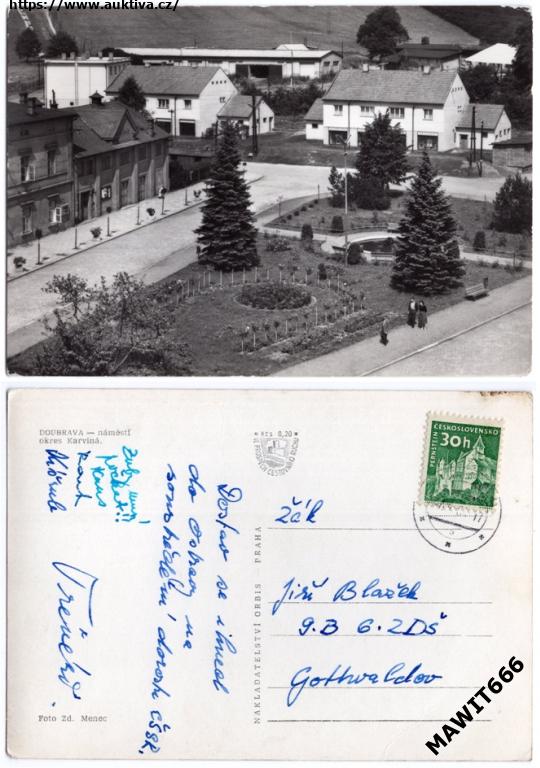 https://www.auktiva.cz/
DOUBRAVA — náměstí
okres Karviná.
Kčs 0,20
Dostav se ihned
do Ostravy na
soustředění dorostu ČSSR.
Foto Zd. Menec
NAKLADATELSTVÍ ORBIS - PRAHA
ČESKOSLOVENSKO
30h
PERNŠTEJN
Žák
Jiří Blažek
9.B 6.ZDŠ
Gottwaldov
MAWIT666